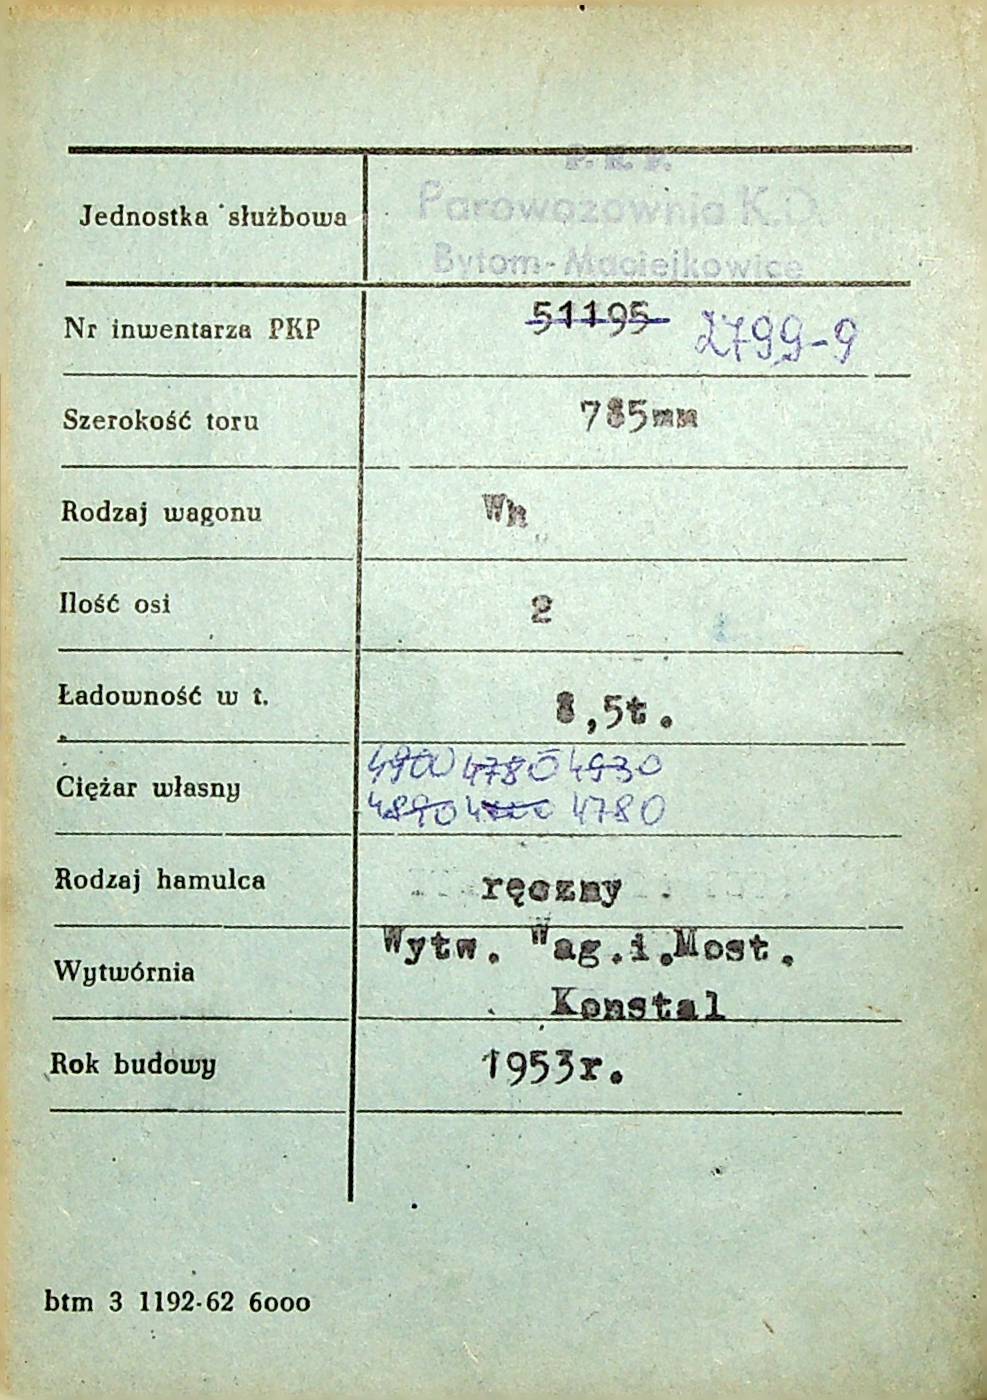 P. K. P.
Jednostka służbowa Parowozownia K.D.
Bytom-Maciejkowice
Nr inwentarza PKP 51195 2799-9
Szerokość toru 785mm
Rodzaj wagonu Wh
Ilość osi 2
Ładowność w t. 8,5t.
4900 4780 4930
Ciężar własny 4890 4780
Rodzaj hamulca ręczny
Wytw. Wag.i.Most.
Wytwórnia Konstal
Rok budowy 1953r.
btm 3 1192-62 6000